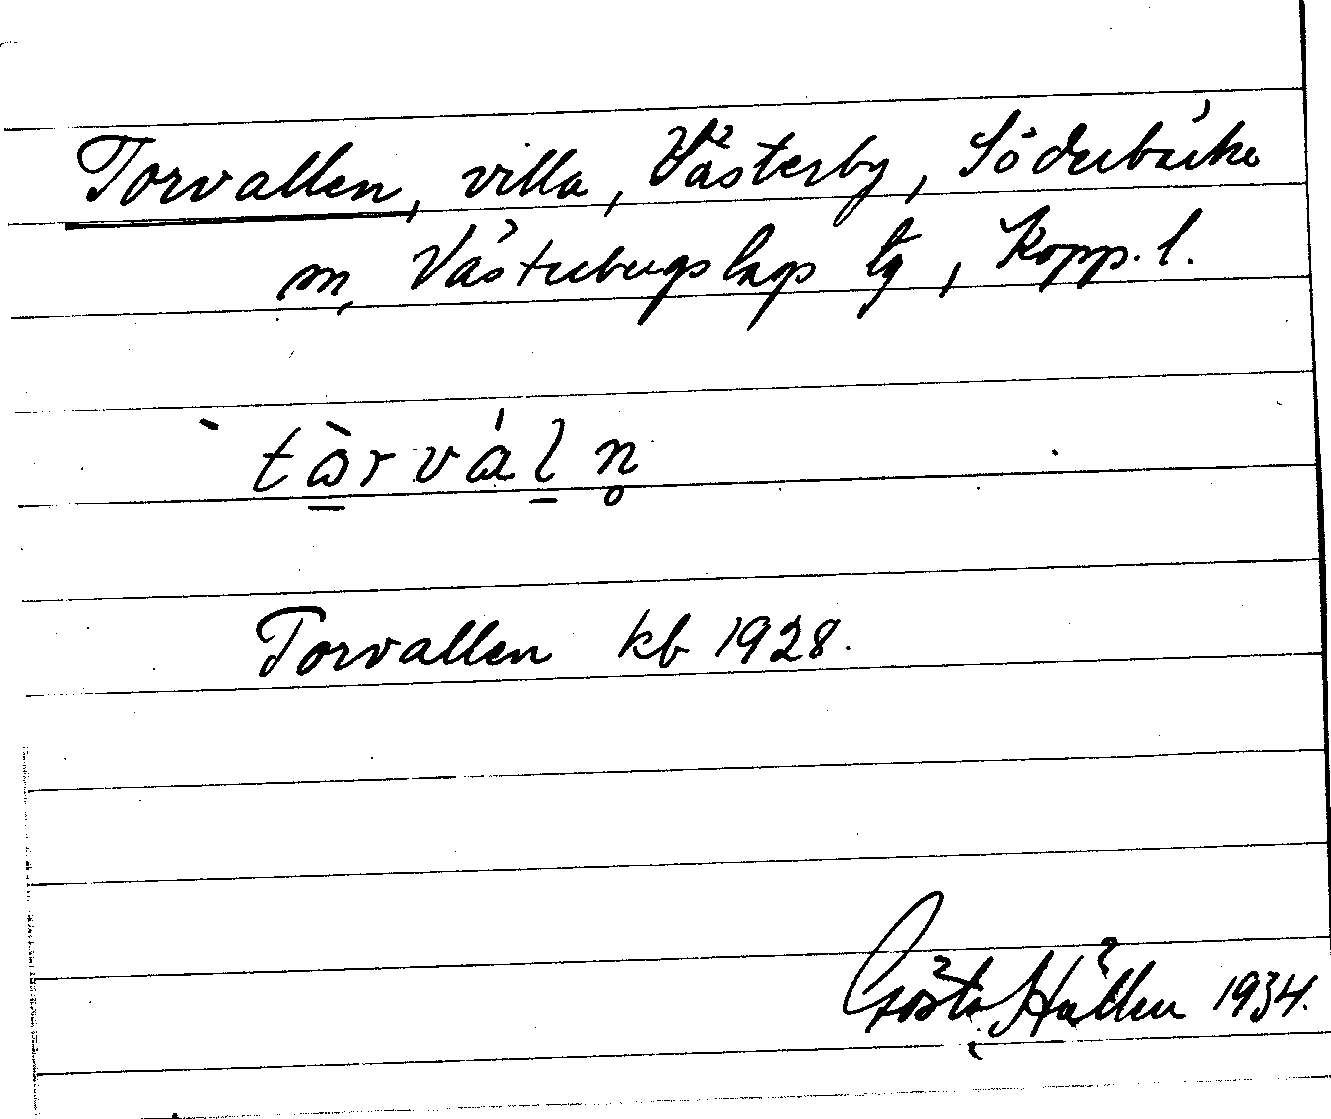 Torvallen, villa, Västerby, Söderbärke
m, Västerbergslags tg, Kopp. l.
`tàrváḻn̥
Torvallen kb 1928.
Gösta Hällen 1934.